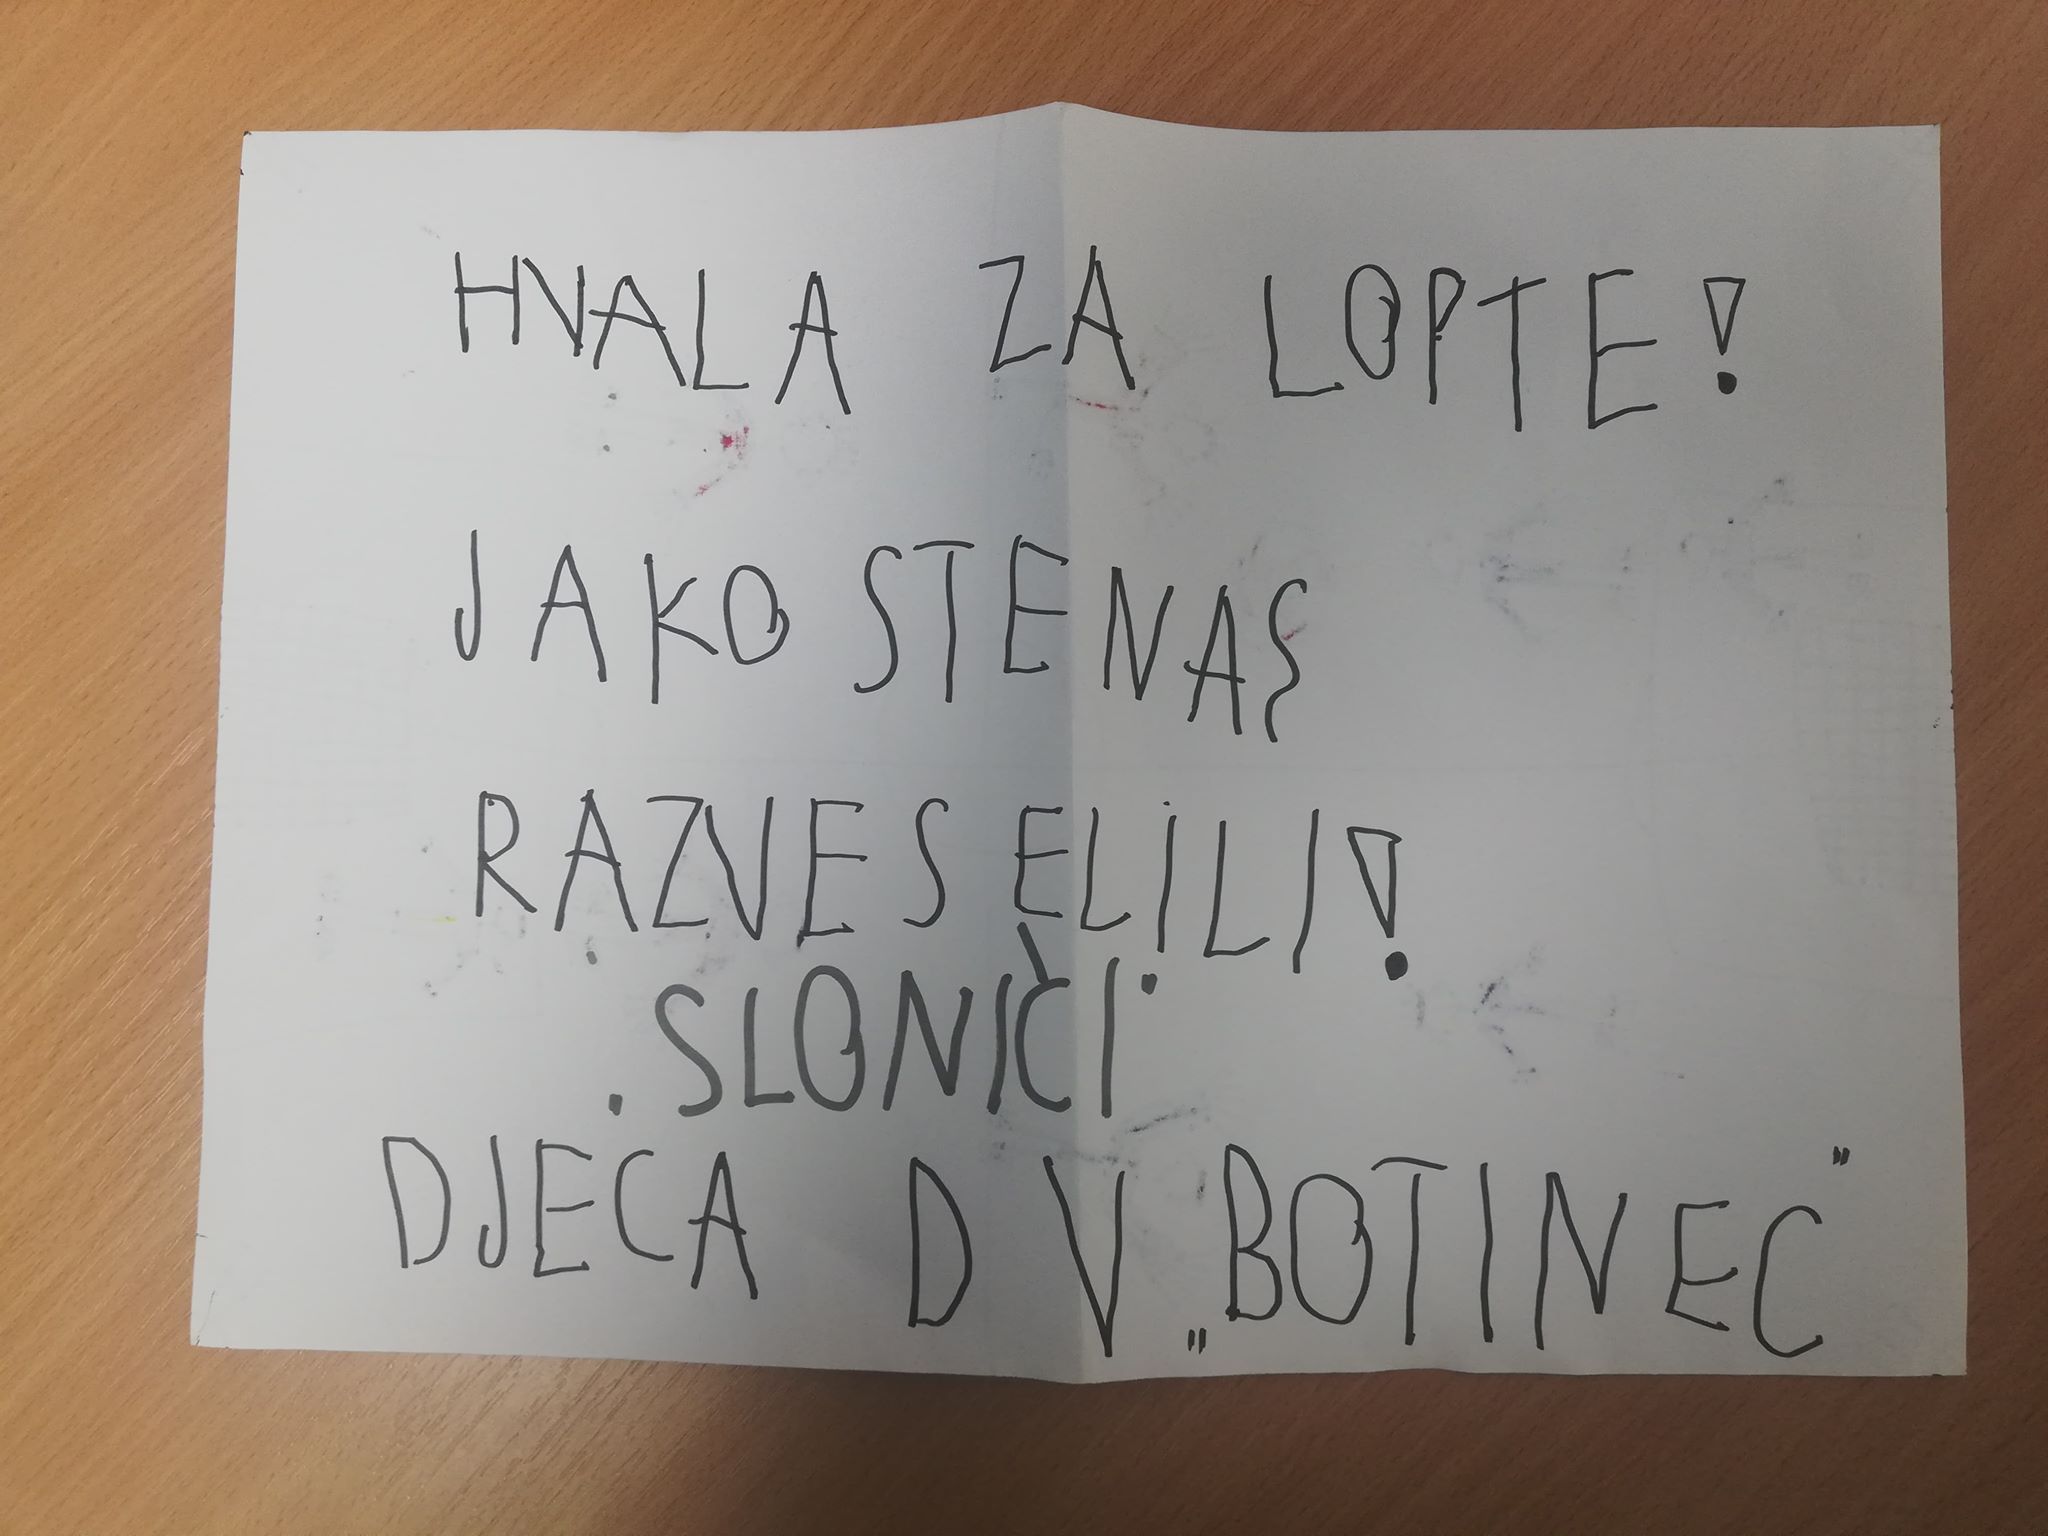 HVALA ZA LOPTE!
JAKO STE NAS
RAZVESELILI!
.SLONIČI.
DJECA DV „BOTINEC"